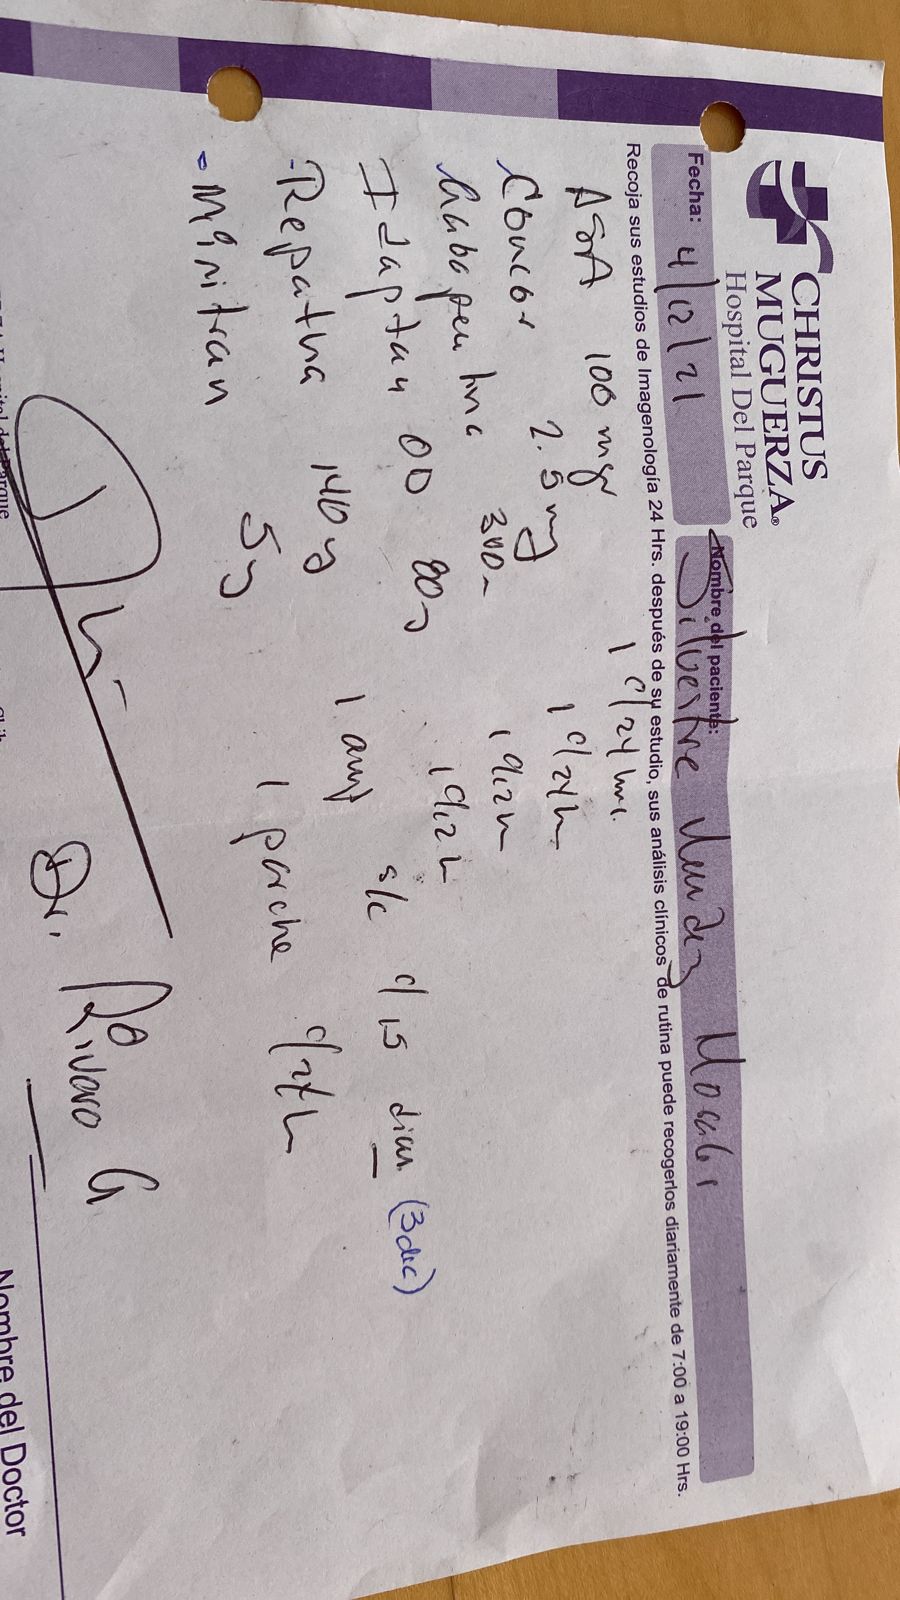 CHRISTUS
MUGUERZA®
Hospital Del Parque
Fecha: 4/12/21
Nombre del paciente: Silvestre Mendez
Recoja sus estudios de Imagenología 24 Hrs. después de su estudio, sus análisis clínicos de rutina puede recogerlos diariamente de 7:00 a 19:00 Hrs.
ASA 100 mgr 1 c/24 hrs.
Concor 2.5 mg 1 c/24h
Gabapentina 300 1 c/12h
Idaptan OD 80 1 c/12h
- Repatha 140 1 amp s/c c/15 dias (3 dic)
- Minitran 5 1 parche c/24h
Dr. G
Hospital del Parque
Chih
Nombre del Doctor